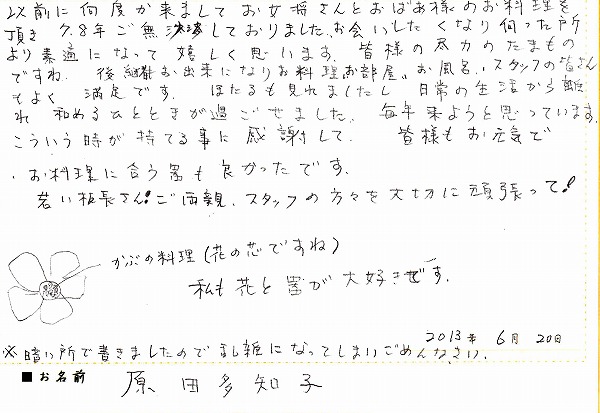 以前に何度か来ましてお女将さんとおばあ様のお料理を
頂き 7.8年ご無沙汰しておりました。お会いしたくなり伺った所
より素適になって嬉しく思います。皆様の尽力のたまもの
ですね。後継者もお出来になりお料理お部屋、お風呂、スタッフの皆さん
もよく 満足です。 ほたるも見れましたし 日常の生活から離
れ 和めるひとときが過ごせました。 毎年来ようと思っています。
こういう時が持てる事に感謝して。 皆様もお元気で
・お料理に合う器も良かったです。
若い板長さん!ご両親、スタッフの方々を大切に頑張って!
かぶの料理(花の芯ですね)
私も花と器が大好きです。
2013年 6月 20日
※暗い所で書きましたので 乱雑になってしまいごめんなさい。
■お名前 原田多知子